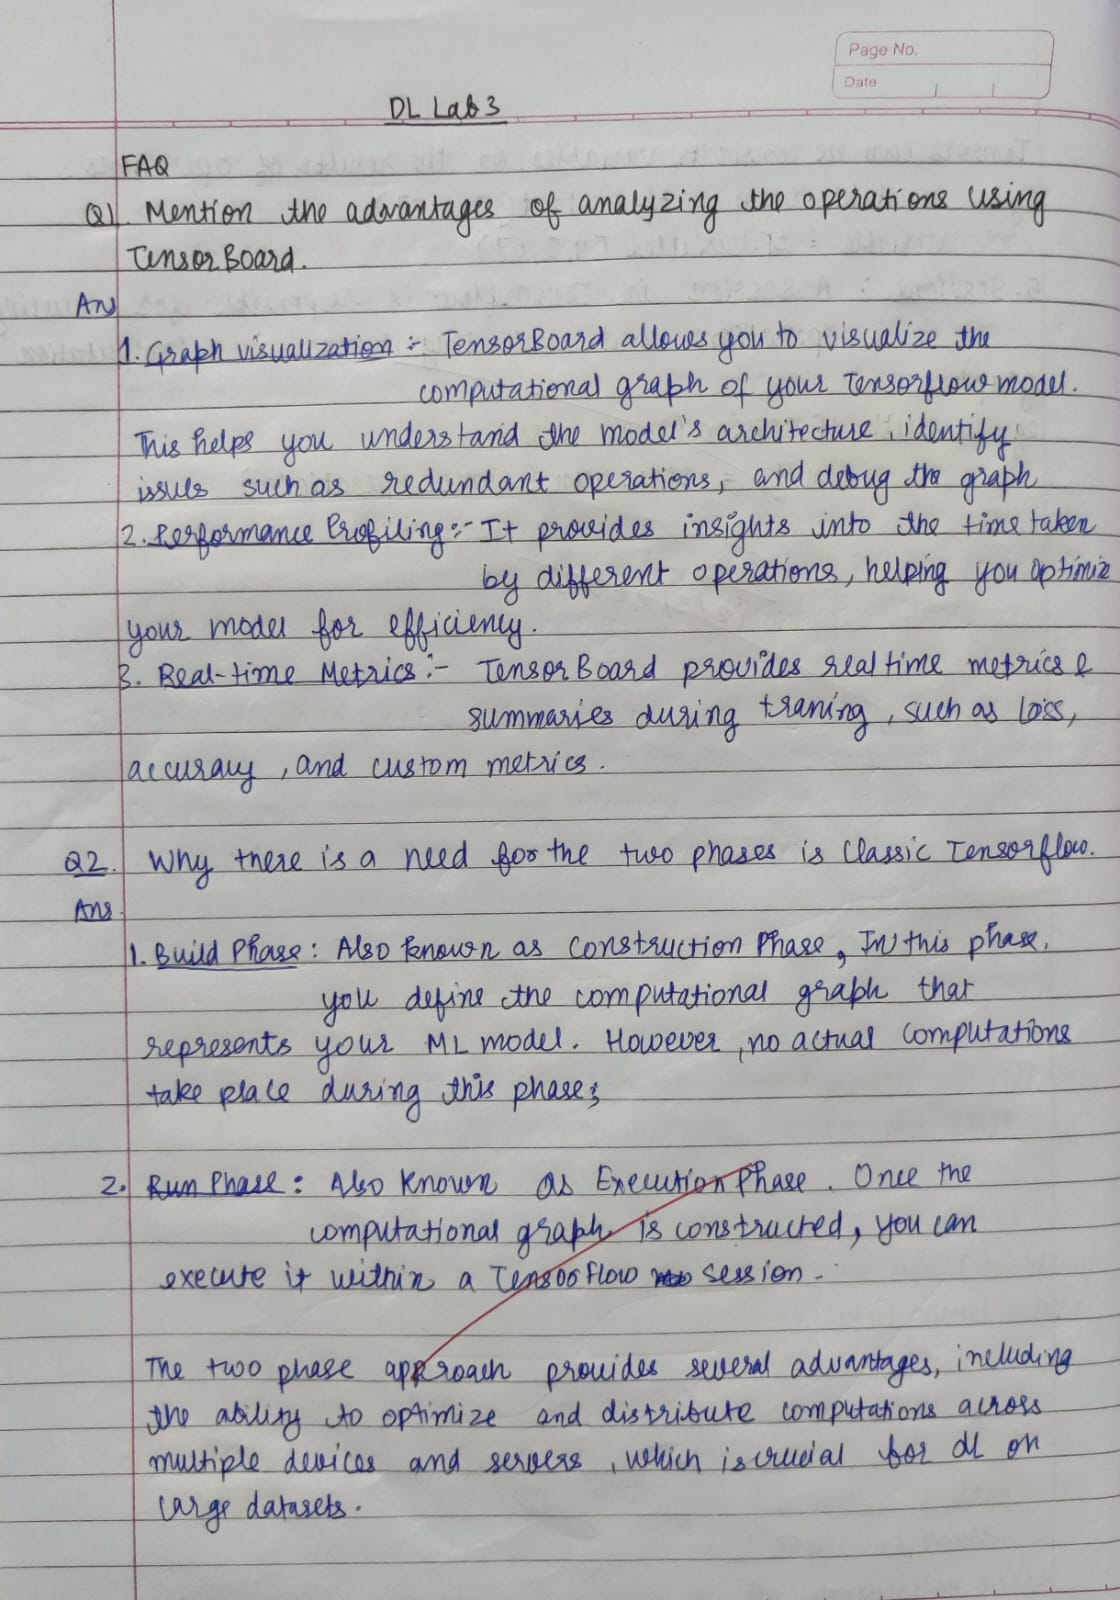 Page No.
Date
DL Lab 3
FAQ
Q1. Mention the advantages of analyzing the operations using
TensorBoard.
Ans
1. Graph visualization :- TensorBoard allows you to visualize the
computational graph of your Tensorflow model.
This helps you understand the model's architecture, identify
issues such as redundant operations, and debug the graph
2. Performance Profiling :- It provides insights into the time taken
by different operations, helping you optimiz
your model for efficiency.
3. Real-time Metrics :- TensorBoard provides real time metrics &
summaries during traning, such as loss,
accuracy, and custom metrics.
Q2. Why there is a need for the two phases is Classic Tensorflow.
Ans.
1. Build Phase : Also known as Construction Phase, In this phase,
you define the computational graph that
represents your ML model. However, no actual computations
take place during this phase;
2. Run Phase : Also Known as Execution Phase. Once the
computational graph is constructed, you can
execute it within a Tensorflow session.
The two phase approach provides several advantages, including
the ability to optimize and distribute computations across
multiple devices and servers, which is crucial for dl on
large datasets.